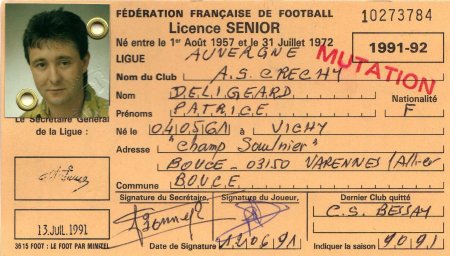 FÉDÉRATION FRANÇAISE DE FOOTBALL
10273784
Licence SENIOR
Né entre le 1er Août 1957 et le 31 Juillet 1972
1991-92
LIGUE AUVERGNE
MUTATION
Nom du Club A.S. CRECHY
Nom DELIGEARD
Nationalité
Prénoms PATRICE F
Le Secrétaire Général
de la Ligue :
Né le 04/05/61 à VICHY
Adresse "Champ Saulnier"
BOUCE - 03150 VARENNES /Allier
Commune BOUCE
Signature du Secrétaire,
Signature du Joueur,
Dernier Club quitté
C.S. BESSAY
13 JUIL. 1991
3615 FOOT : LE FOOT PAR MINITEL
Date de Signature 12.06.91
Indiquer la saison 90.91